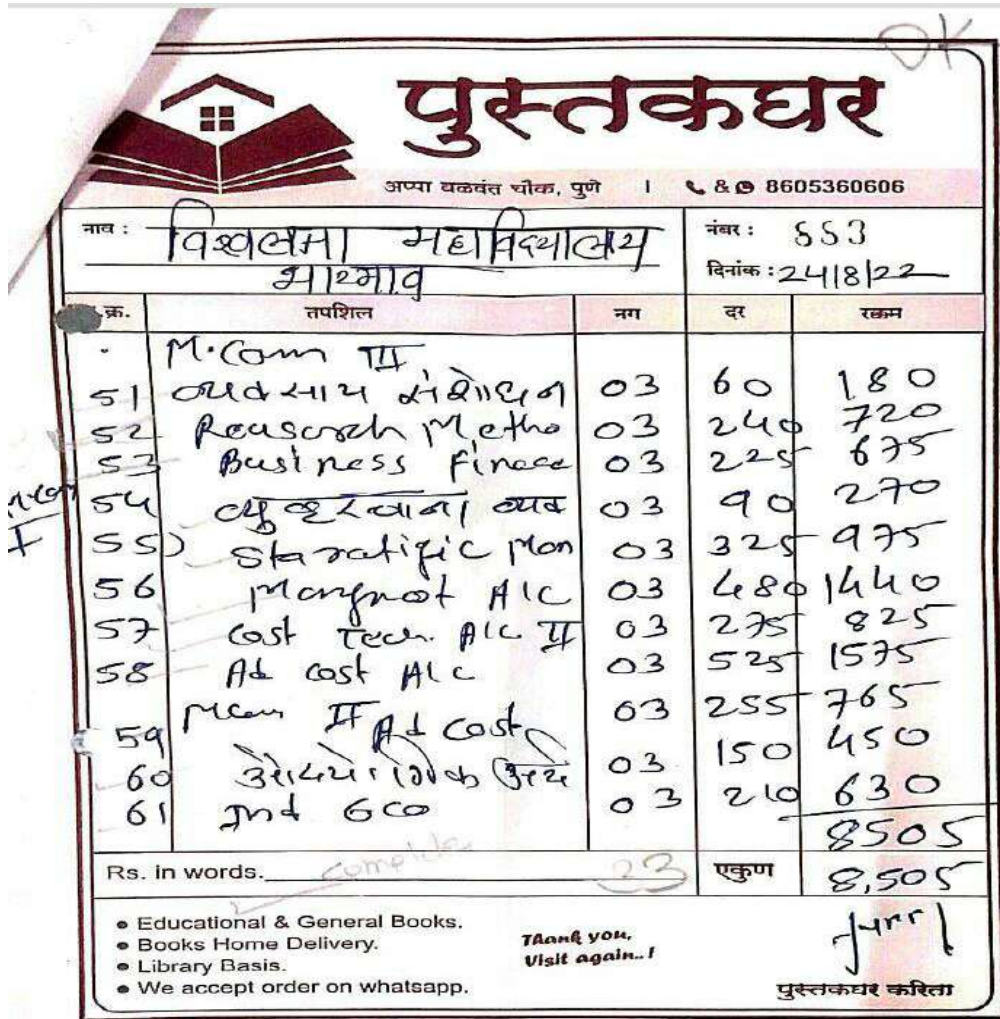 OK
पुस्तकघर
अप्पा बळवंत चौक, पुणे | & 8605360606
नाव : महाविद्यालय
नंबर : 553
दिनांक : 24/8/22
क्र. तपशिल नग दर रक्कम
M.Com III
51 व्यवसाय संशोधन 03 60 180
52 Metho 03 240 720
53 Business Finace 03 225 675
54 03 90 270
55) Staratific Man 03 325 975
56 A/C 03 480 1440
57 Cost Tech. A/C II 03 275 825
58 Ad cost A/C 03 525 1575
59 II Ad Cost 03 255 765
60 03 150 450
61 Ind Eco 03 210 630
8505
Rs. in words. complete 23 एकुण 8,505
Educational & General Books.
Books Home Delivery.
Library Basis.
We accept order on whatsapp.
Thank you,
Visit again..!
पुस्तकघर करिता